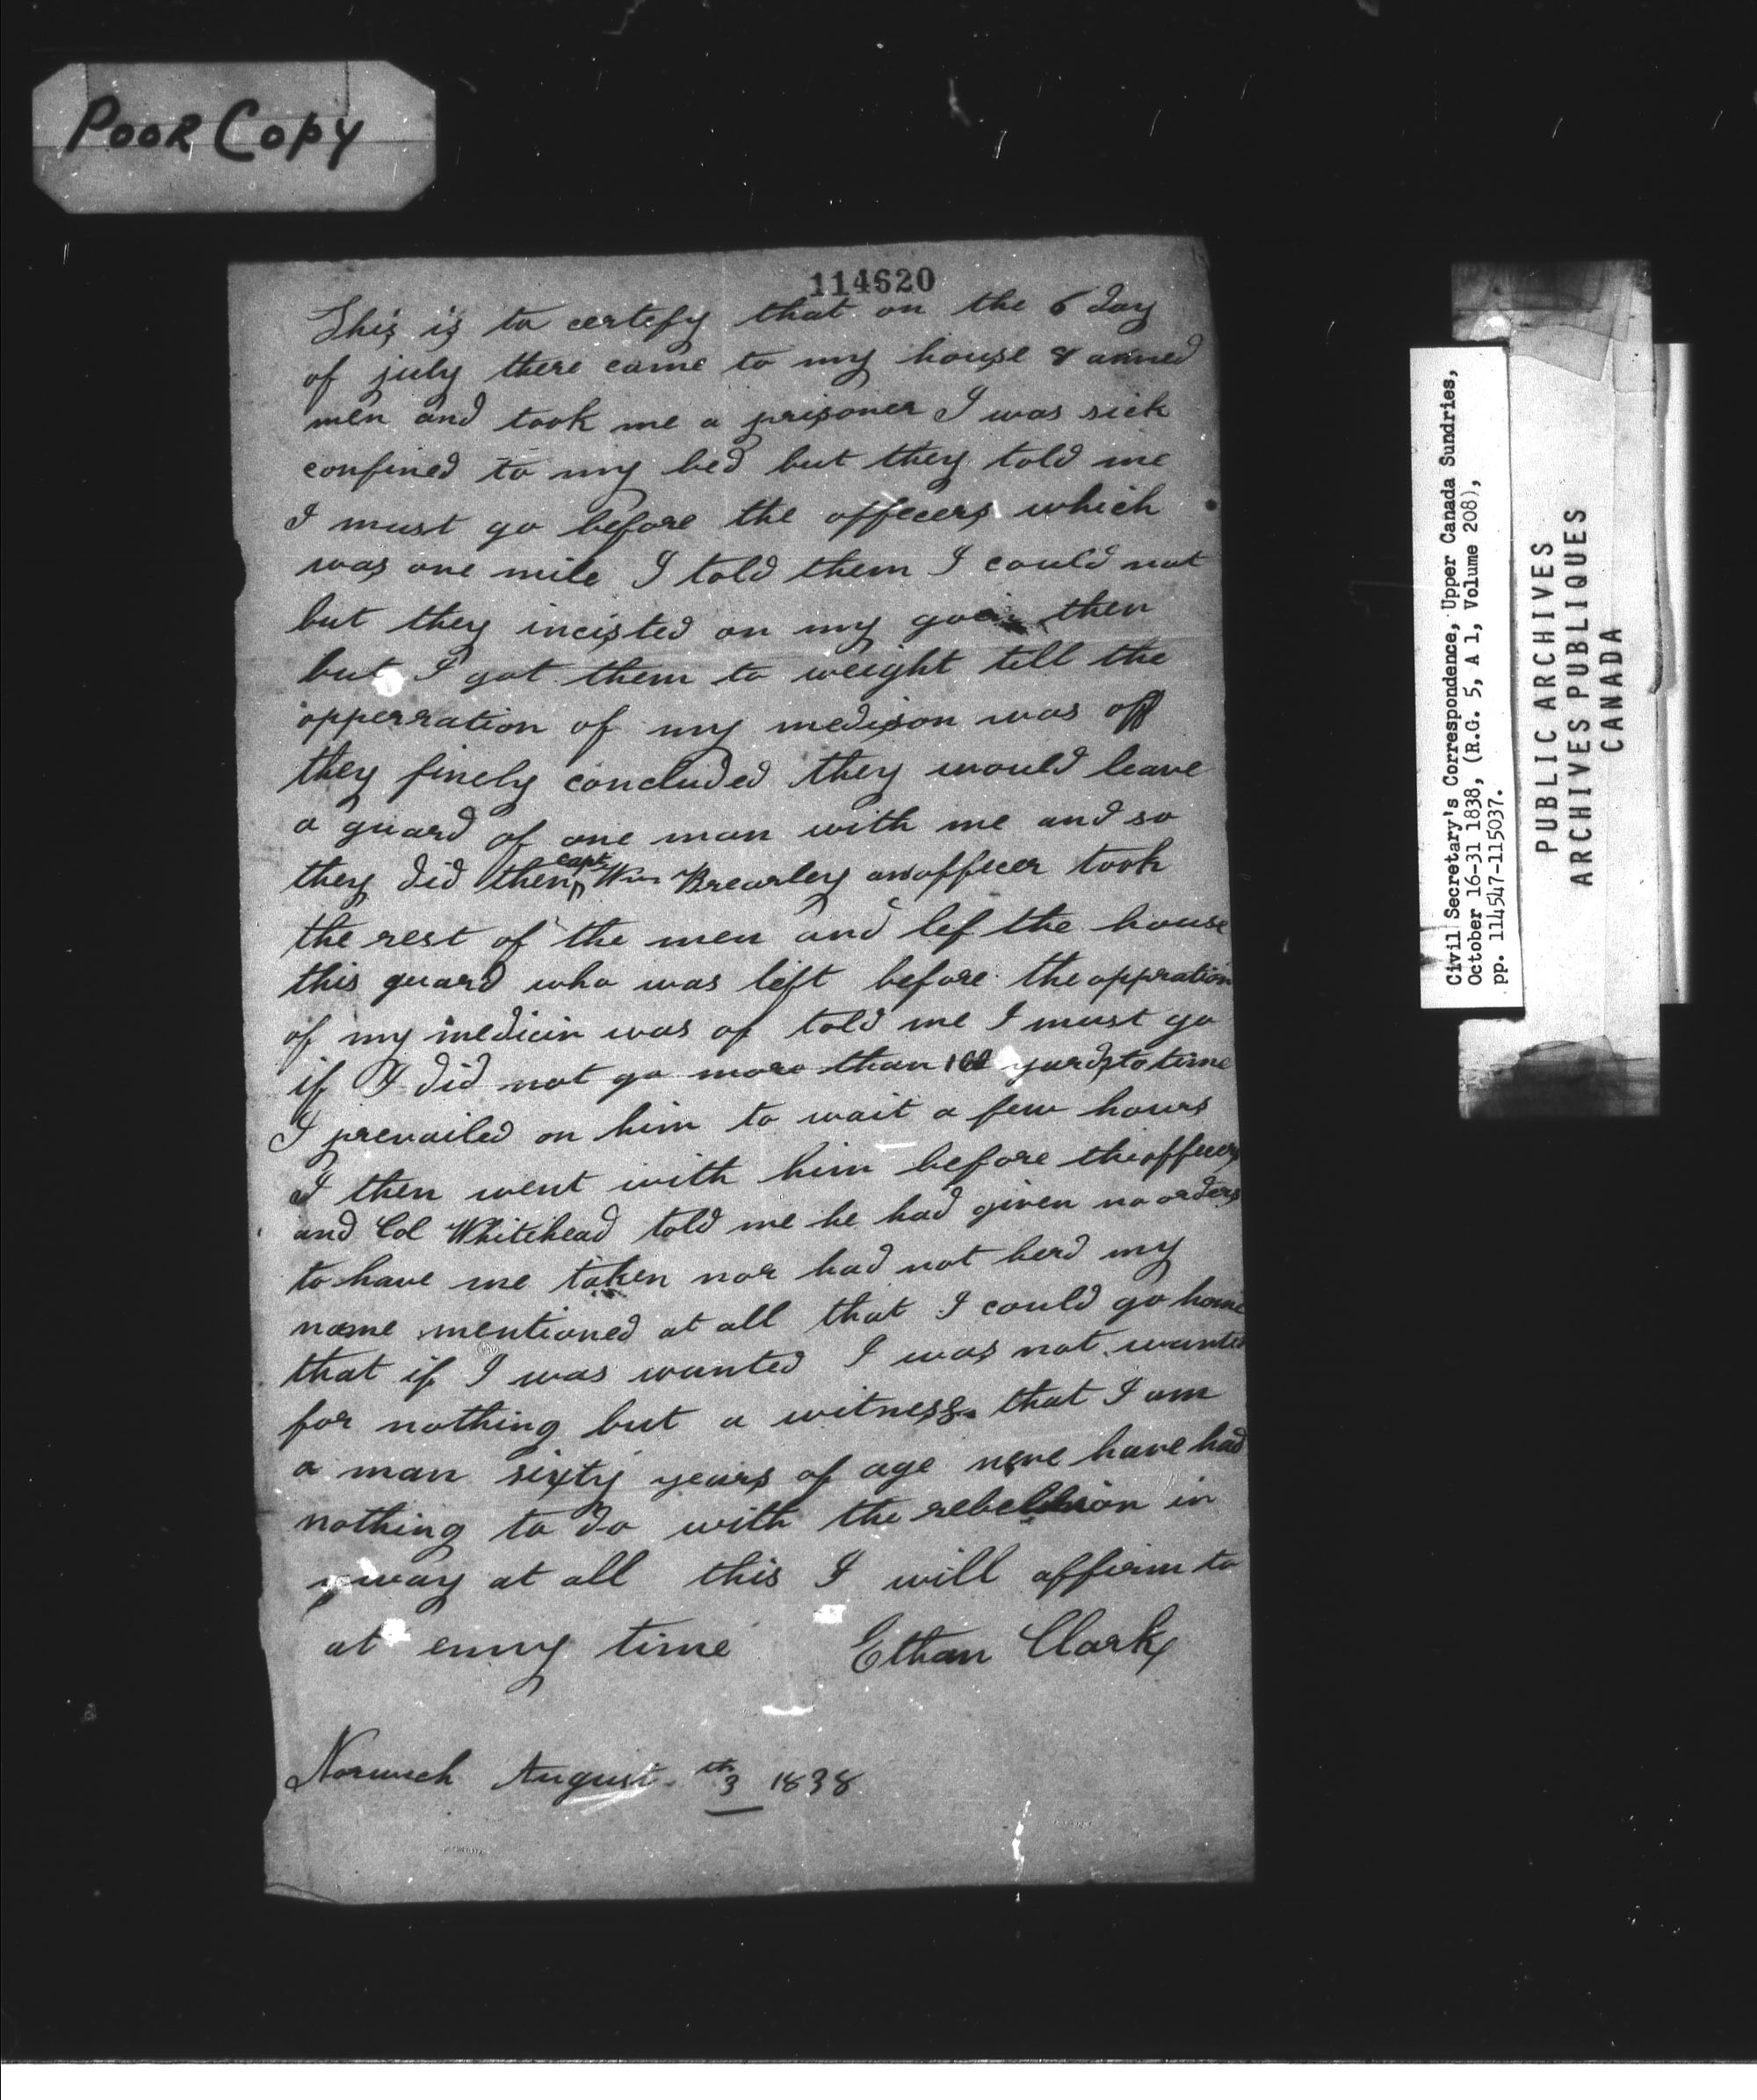 Poor Copy
114620
This is to certefy that on the 6 day
of july there came to my house 8 armed
men and took me a prisoner I was sick
confined to my bed but they told me
I must go before the offecers which
was one mile I told them I could not
but they incisted on my then
but I got them to weight till the
opperration of my medison was off
they finely concluded they would leave
a guard of one man with me and so
they did then capt Wm Brearley an offecer took
the rest of the men and lef the house
this guard who was left before the oppration
of my medicin was of told me I must go
if I did not go more than yards to time
I prevailed on him to wait a few hours
I then went with him before the offecers
and Col Whitehead told me he had given no orders
to have me taken nor had not herd my
name mentioned at all that I could go home
that if I was wanted I was not wanted
for nothing but a witness that I am
a man sixty years of age have had
nothing to do with the rebellion in
way at all this I will affirm to
at enny time Ethan Clark
Norwich August 3th 1838
Civil Secretary's Correspondence, Upper Canada Sundries,
October 16-31 1838, (R.G. 5, A 1, Volume 208),
pp. 114547-115037.
PUBLIC ARCHIVES
ARCHIVES PUBLIQUES
CANADA